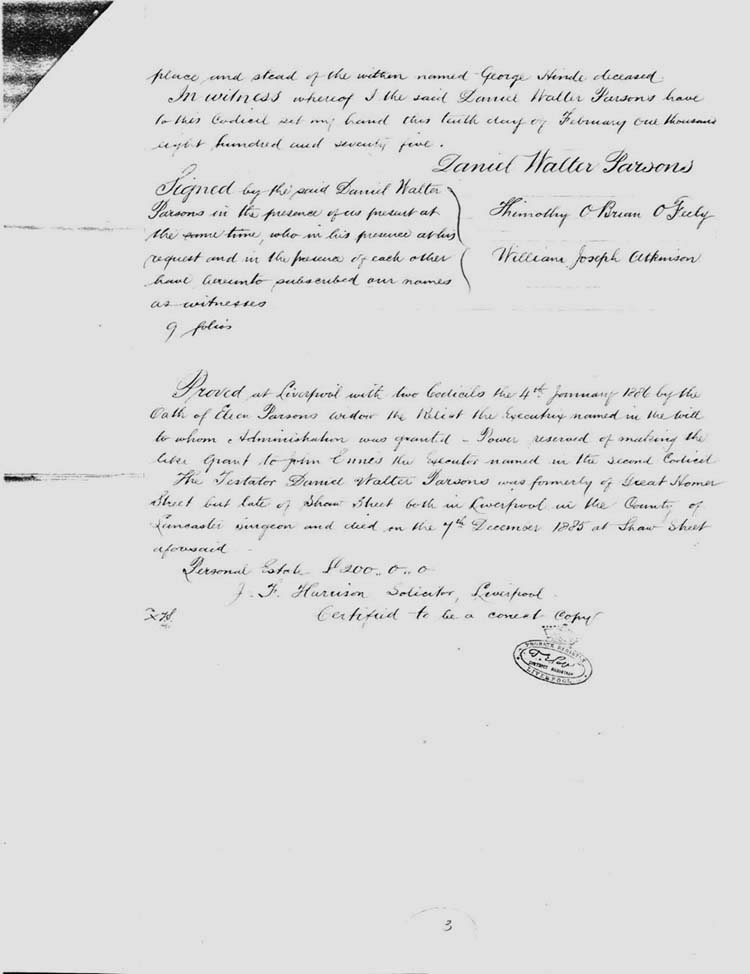 place and stead of the within named George Hinde deceased
In witness whereof I the said Daniel Walter Parsons have
to this Codicil set my hand this tenth day of February one thousand
eight hundred and seventy five.
Daniel Walter Parsons
Signed by the said Daniel Walter
Parsons in the presence of us present at
the same time, who in his presence at his
request and in the presence of each other
have hereunto subscribed our names
as witnesses
Thimothy O Brian O Feely
William Joseph Atkinson
9 folios
Proved at Liverpool with two Codicils the 4th January 1886 by the
Oath of Ellen Parsons widow the Relict the Executrix named in the will
to whom Administration was granted - Power reserved of making the
like Grant to John Ennis the Executor named in the second Codicil
The Testator Daniel Walter Parsons was formerly of Great Homer
Street but late of Shaw Street both in Liverpool in the County of
Lancaster Surgeon and died on the 7th December 1885 at Shaw Street
aforesaid
Personal Estate £200..0..0
J. F. Harrison Solicitor, Liverpool.
Certified to be a correct Copy
PROBATE REGISTRY
DISTRICT REGISTRAR
LIVERPOOL
3